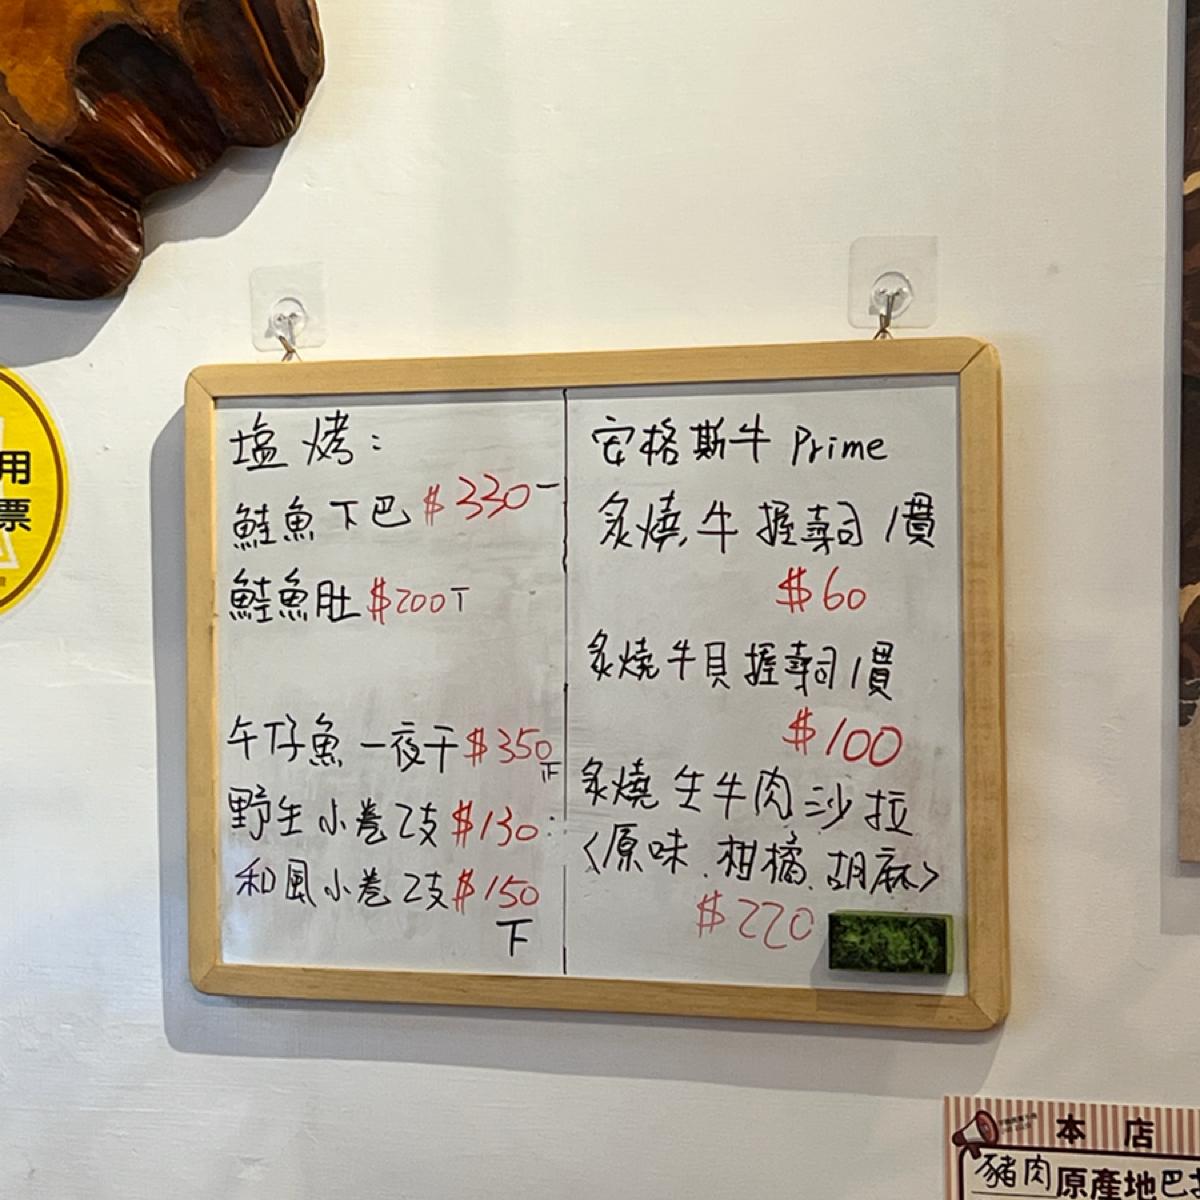 塩烤：
鮭魚下巴 $330一
鮭魚肚 $200T
午仔魚一夜干 $350
正
野生小卷2支 $130
和風小卷2支 $150
下
安格斯牛 Prime
炙燒牛握壽司 1貫
$60
炙燒牛貝握壽司 1貫
$100
炙燒生牛肉沙拉
〈原味、柑橘、胡麻〉
$220
用
票
本店
豬肉原產地巴